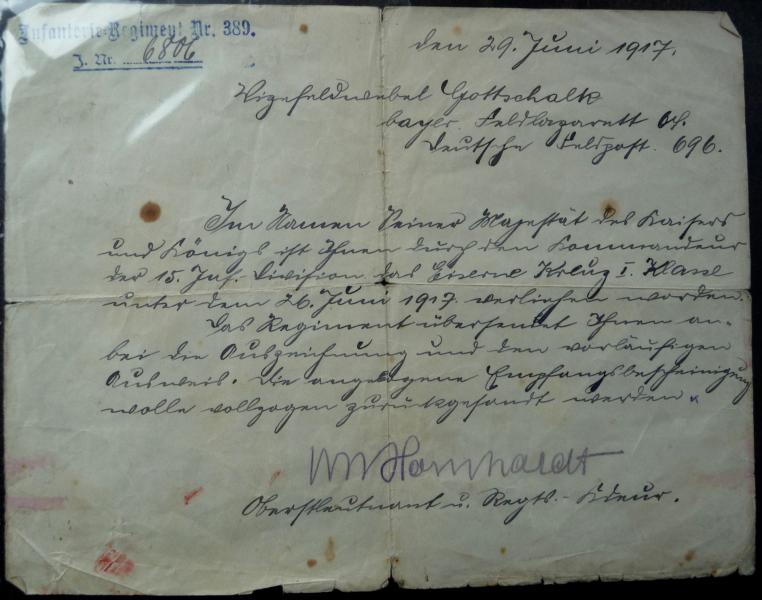 Infanterie-Regiment Nr. 389.
J. Nr. 6806
den 29. Juni 1917.
Vizefeldwebel Gottschalk
bayer. Feldlazarett 64.
Deutsche Feldpost. 696.
Im Namen Seiner Majestät des Kaisers
und Königs ist Ihnen durch den Kommandeur
der 15. Inf. Division das Eiserne Kreuz I. Klasse
unter dem 26. Juni 1917. verliehen worden.
Das Regiment übersendet Ihnen an-
bei die Auszeichnung und den vorläufigen
Ausweis. Die angebogene Empfangsbescheinigung
wolle vollzogen zurückgesandt werden.
Oberstleutnant u. Regts.-Kdeur.